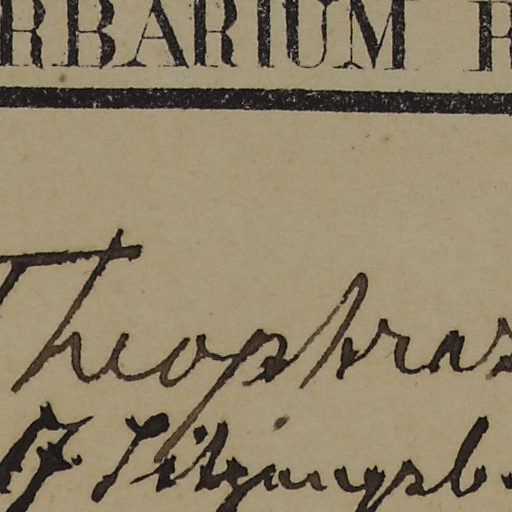 RBARIUM R
Theophras
Sitzungsb.